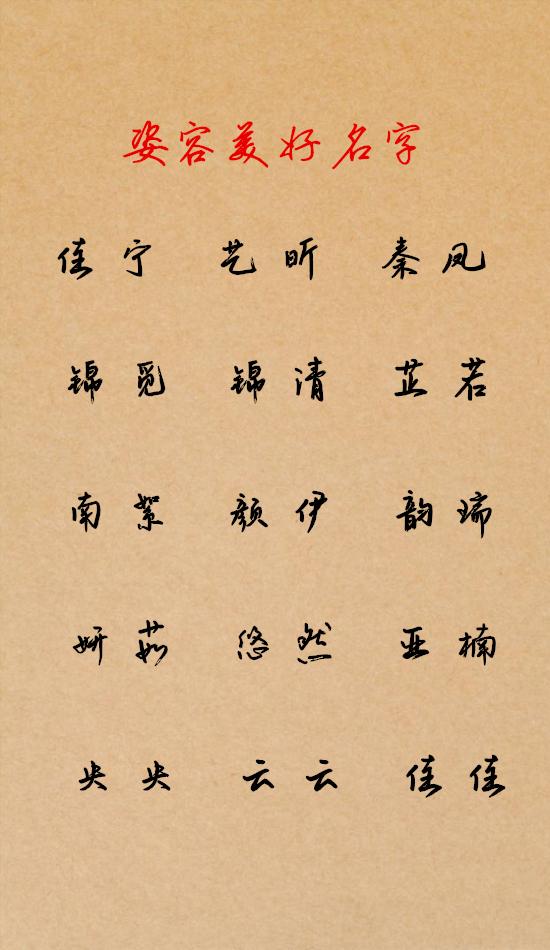 姿容美好名字
佳宁 艺昕 秦凤
锦觅 锦清 芷若
南絮 颜伊 韵瑞
妍茹 悠然 亚楠
央央 云云 佳佳